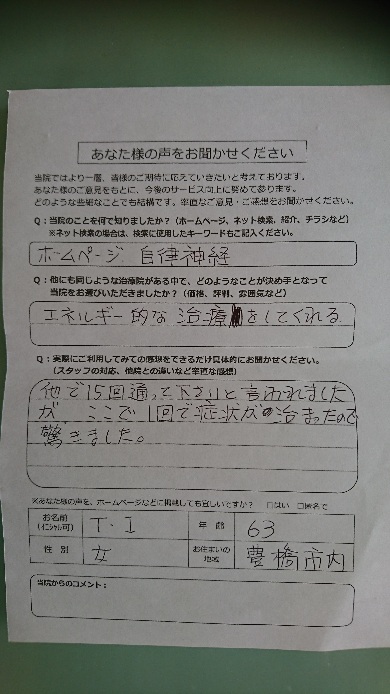 あなた様の声をお聞かせください
当院ではより一層、皆様のご期待に応えていきたいと考えております。
あなた様のご意見をもとに、今後のサービス向上に努めて参ります。
どのような些細なことでも結構です。率直なご意見・ご感想をお聞かせください。
Q：当院のことを何で知りましたか？（ホームページ、ネット検索、紹介、チラシなど）
※ネット検索の場合は、検索に使用したキーワードもご記入ください。
ホームページ、自律神経
Q：他にも同じような治療院がある中で、どのようなことが決め手となって
当院をお選びいただきましたか？（価格、評判、雰囲気など）
エネルギー的な治療をしてくれる
Q：実際にご利用してみての感想をできるだけ具体的にお聞かせください。
（スタッフの対応、他院との違いなど率直な感想）
他で15回通って下さいと言われました
が ここで1回で症状が治まったので
驚きました。
※あなた様の声を、ホームページなどに掲載しても宜しいですか？ 口はい 口匿名で
お名前 （イニシャル可） T・I 年 齢 63
性 別 女 お住まいの地域 豊橋市内
当院からのコメント：